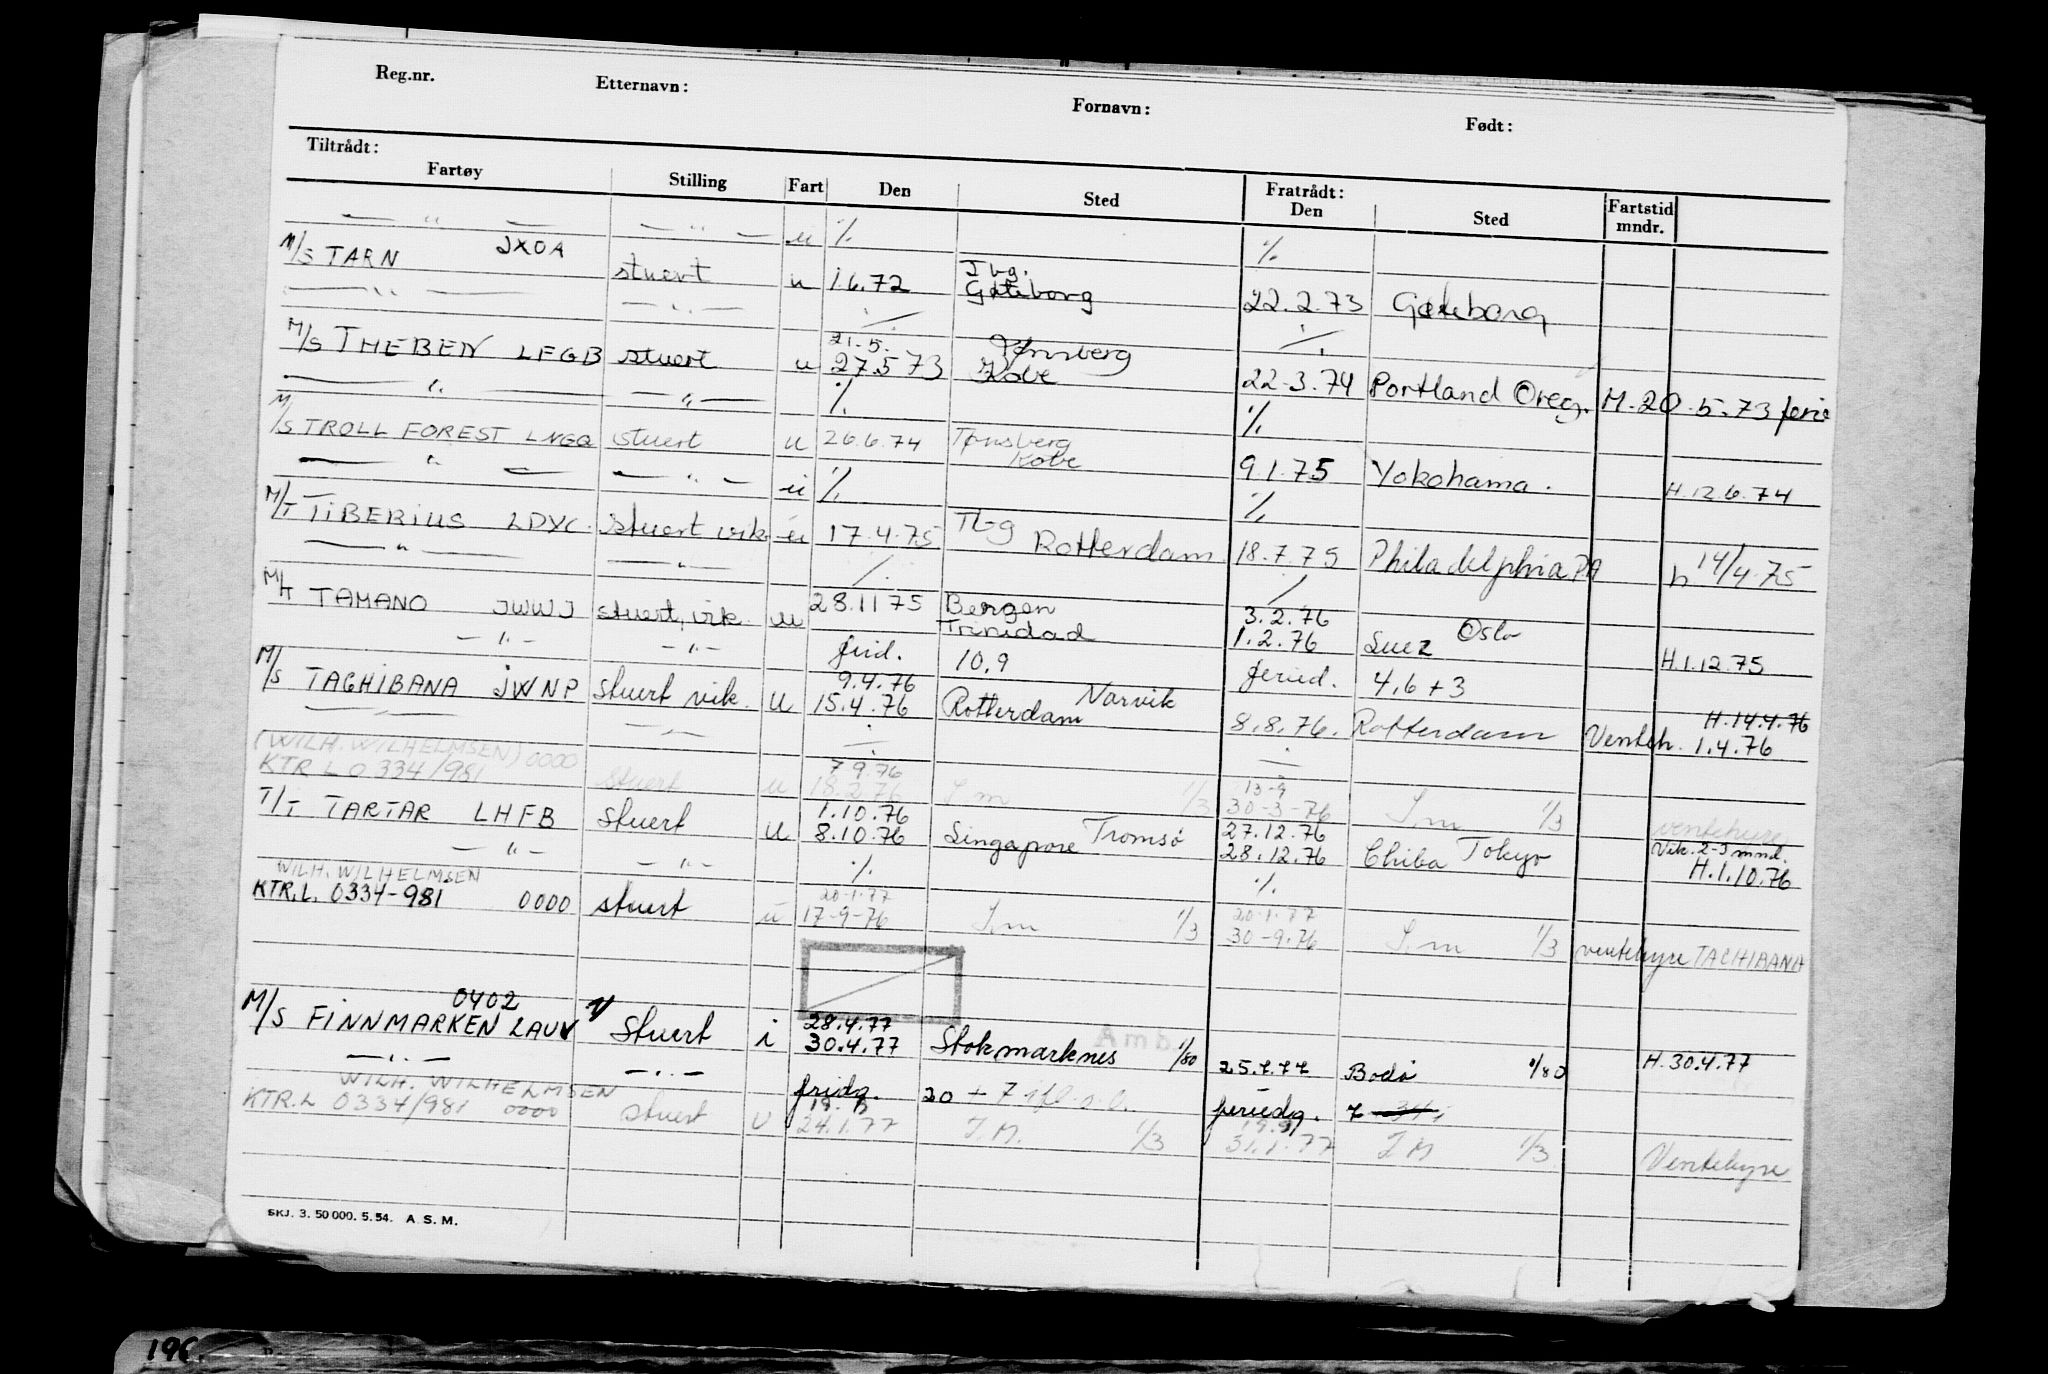 Reg.nr. Etternavn: Fornavn: Født:
Tiltrådt: Fratrådt:
Fartøy Stilling Fart Den Sted Den Sted Fartstid mndr.
— " — — " — u % %
M/S TARN JXOA stuert u 1.6.72 Göteborg 22.2.73 Göteborg
— " — — " — ./. ./.
21.5. Tønsberg
M/S THEBEN LFGB stuert u 27.5 73 Kobe 22-3.74 Portland Oreg. M-20.5.73 ferie
— " — — " — % %
M/S TROLL FOREST LNGQ stuert u 26.6.74 Tønsberg Kobe 9.1.75 Yokohama. H.12.6.74
— " — — " — u % %
M/T TIBERIUS LDYC. stuert vik. u 17.4.75 Tbg Rotterdam 18.7.75 Philadelphia PA h 14/4.75
— " — — " — ./. ./.
M/T TAMANO JWWJ stuert, vik. u 28.11 75 Bergen Trinidad 3.2.76 Oslo
— " — — " — 1.2.76 Suez H.1.12.75
frid. 10.9 feried. 4,6+3
9.4.76 Narvik H.14.4.76
M/S TACHIBANA JWNP stuert vik. u 15.4.76 Rotterdam 8.8.76. Rotterdam Venteh. 1.4.76
— " — — " — ./. ./.
(WILH. WILHELMSEN) 0000 7 9.76 13-9
KTR L 0334/981 stuert u 18.2.76 I.m 1/3 30-3-76 I.m 1/3 ventehyre
1.10.76 Tromsø 27.12.76 Tokyo Vik. 2-3 mnd.
T/T TARTAR LHFB stuert u 8.10.76 Singapore 28.12.76 Chiba H.1.10.76
— " — — " — % %
WILH. WILHELMSEN 20-1-77 20-1-77
KTR.L. 0334-981 0000 stuert u 17-9-76 I.m 1/3 30-9.76 I.m 1/3 ventehyre TACHIBANA
0402 28.4.77 Amb.
M/S FINNMARKEN LAUV stuert i 30.4.77 Stokmarknes 1/80 25.7.77 Bodø 1/80 H.30.4.77
— " — — " —
fridg. 20 + 7 feriedg. 7
WILH. WILHELMSEN
KTR.L 0334/981 0000 stuert U 24.1.77 I.M. 1/3 31.1.77 I M 1/3 Ventehyre
SKJ. 3. 50 000. 5. 54. A. S. M.
196